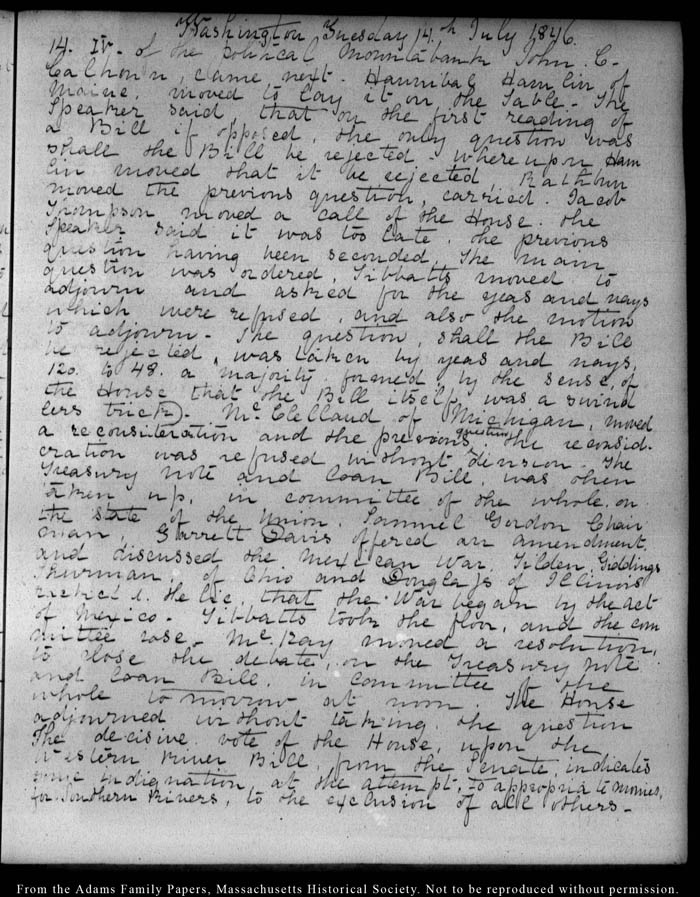 Washington Tuesday 14.th July 1846.
14. IV. of the political Mountabank John C.
Calhoun, came next. Hannibal Hamlin of
Maine, moved to lay it on the Table - The
Speaker said that on the first reading of
a Bill if opposed, the only question was
shall the Bill be rejected - whereupon Ham
lin moved that it be rejected, Rathbun
moved the previous question, carried. Jacob
Thompson moved a call of the House. the
Speaker said it was too late. the previous
question having been seconded, The main
question was ordered, Tibbatts moved to
adjourn and asked for the yeas and nays
which were refused, and also the motion
to adjourn - The question, shall the Bill
be rejected, was taken by yeas and nays,
120. to 48. a majority formed by the sense, of
the House that the Bill itself was a swind
lers trick). Mc.Clelland of Michigan, moved
a reconsiteration and the previous question the reconsid-
eration was refused without division - The
Treasury note and Loan Bill, was then
taken up, in committee of the whole on
the state of the Union. Samuel Gordon Chair
man, Garrett Davis offered an amendment,
and discussed the Mexican War, Tilden, Giddings
Thurman, of Ohio and Douglass of Illinois
the lie that the War began by the act
of Mexico - Tibbatts took the floor, and the com
mittee rose - Mc.Kay moved a resolution,
to close the debate, on the Treasury note
and Loan Bill, in committee of the
whole to morrow at noon. The House
adjourned without taking the question
The decisive vote of the House, upon the
Western River Bill, from the Senate, indicates
some indignation at the attempt, to appropriate monies,
for Southern Rivers, to the exclusion of all others -
From the Adams Family Papers, Massachusetts Historical Society. Not to be reproduced without permission.